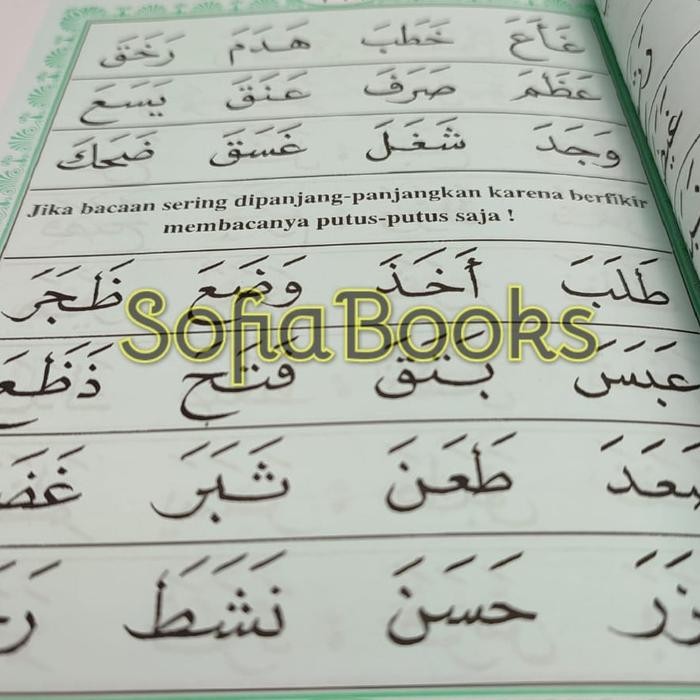 غَأَعَ خَطَبَ هَدَمَ رَخَقَ
عَظَمَ صَرَفَ عَنَقَ يَسَعَ
وَجَدَ شَغَلَ غَسَقَ ضَحَكَ
Jika bacaan sering dipanjang-panjangkan karena berfikir
membacanya putus-putus saja !
طَلَبَ أَخَذَ وَضَعَ ظَجَرَ
Sofia Books
عَبَسَ بَتَقَ فَتَحَ
طَعَنَ ثَبَرَ
حَسَنَ نَشَطَ